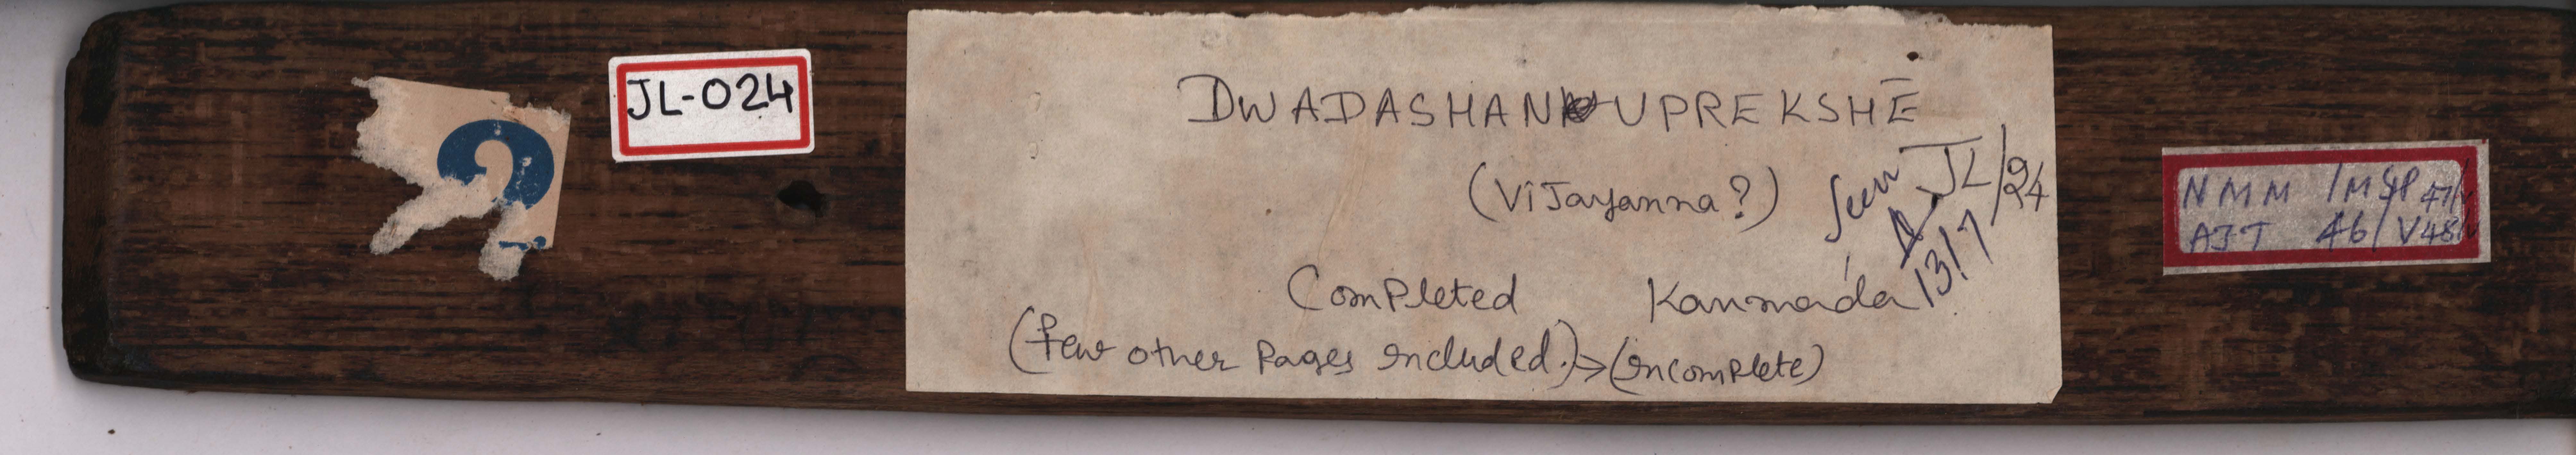 JL-024
DWADASHANUPREKSHE
(Vijayanna?)
Seen
JL/24
13/7
Completed Kannada
(few other pages included.)→(incomplete)
NMM /MSP 47/
AJT 46/V48/